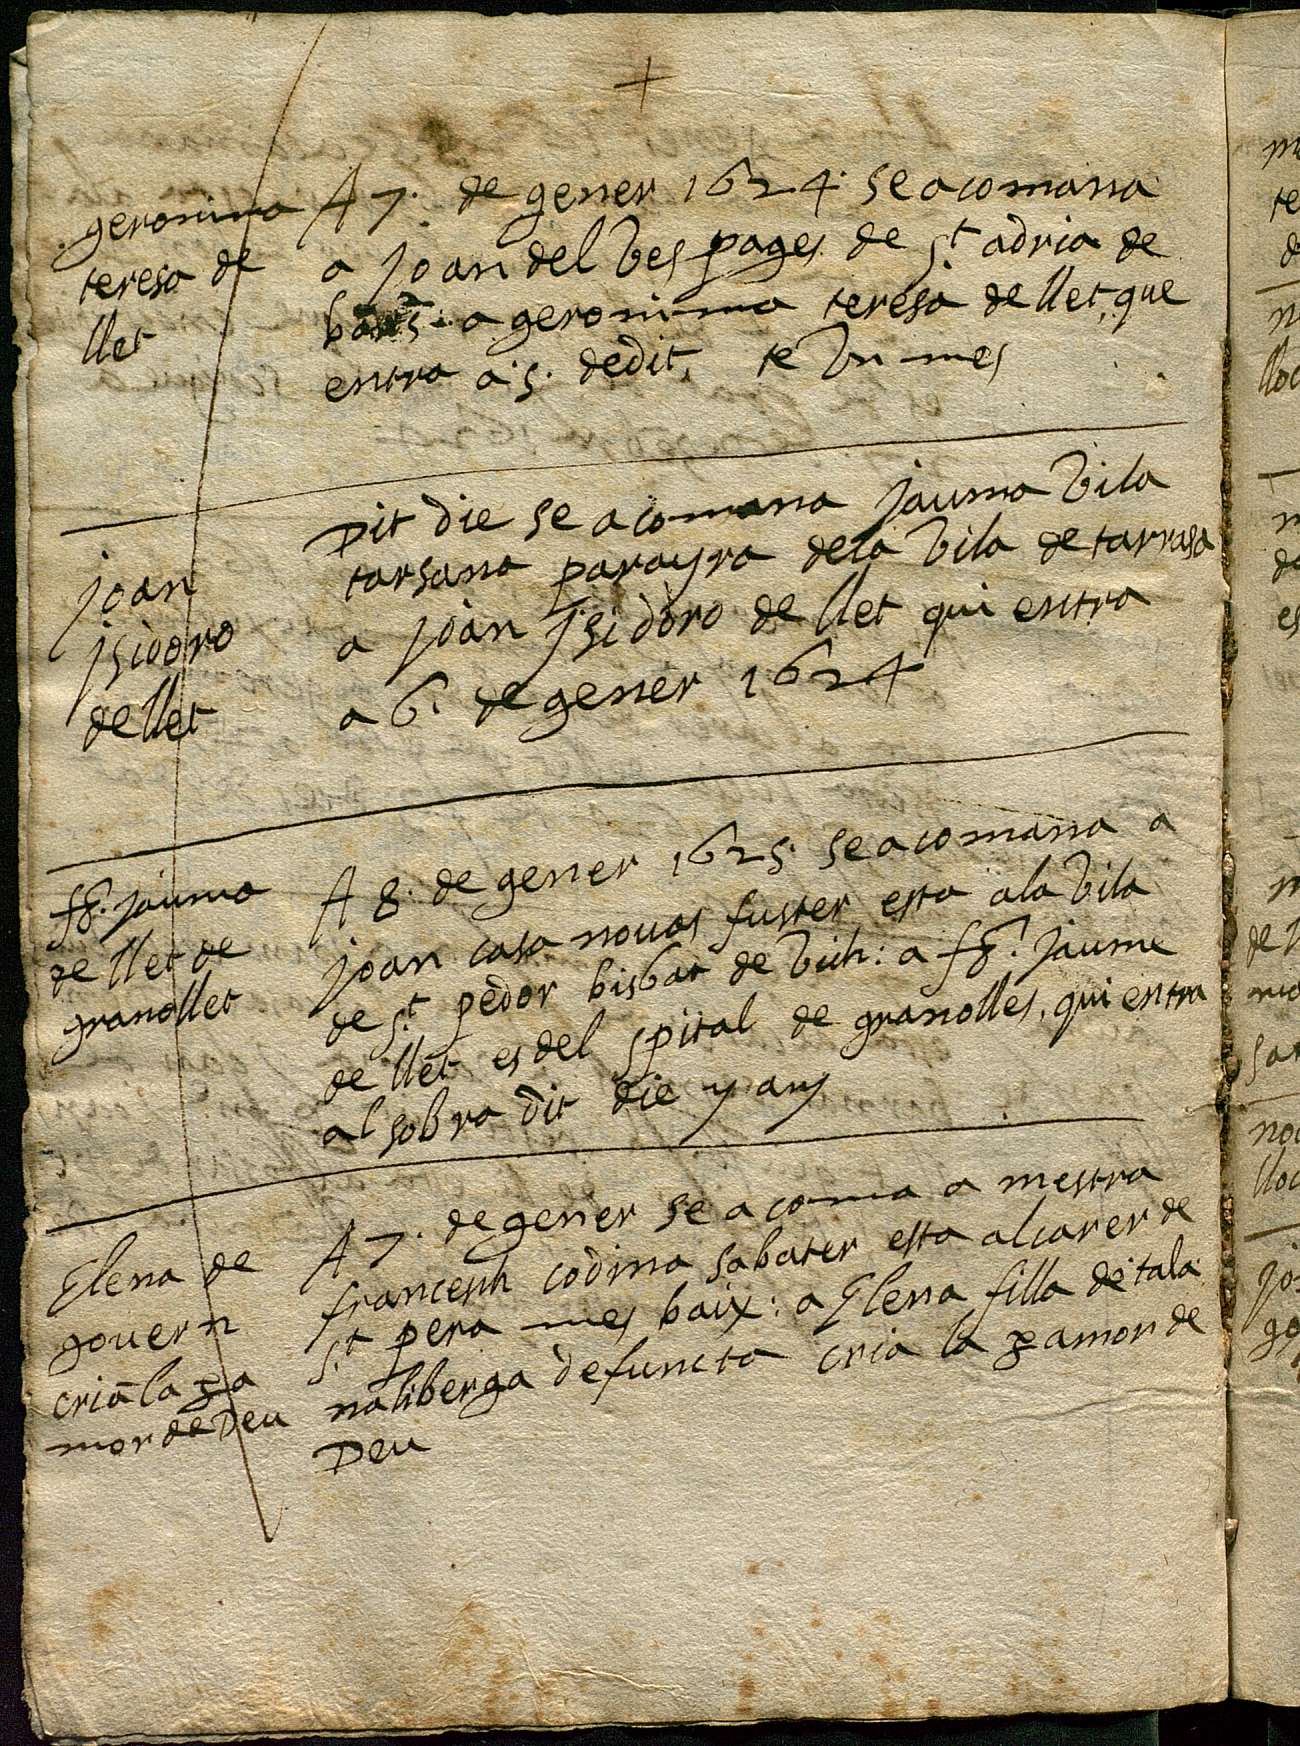 +
geronima
teresa de
llet
A 7. de gener 1624. se acomana
a Joan del Ves pages de St adria de
a geronima teresa de llet, que
entra a 5. dedit, te Vn mes
Joan
Jsidoro
de llet
Dit die se acomana Jauma Vila
tarsana parayra dela Vila de tarrasa
a Joan Jsidoro de llet qui entra
a 6. de gener 1624
fo. Jauma
de llet de
granollet
A 8. de gener 1625. se acomana a
Joan casa nouas fuster esta ala Vila
de St pedor bisbat de Vich: a fo. Jaume
de llet es del spital de granolles, qui entra
al sobra dit die y any
Elena de
gouern
cria la p a
mor de Deu
A 7. de gener se acoma a mestra
francesch codina sabater esta al carer de
St pera mes baix: a Elena filla de tala
naliberga defuncta cria la p amor de
Deu